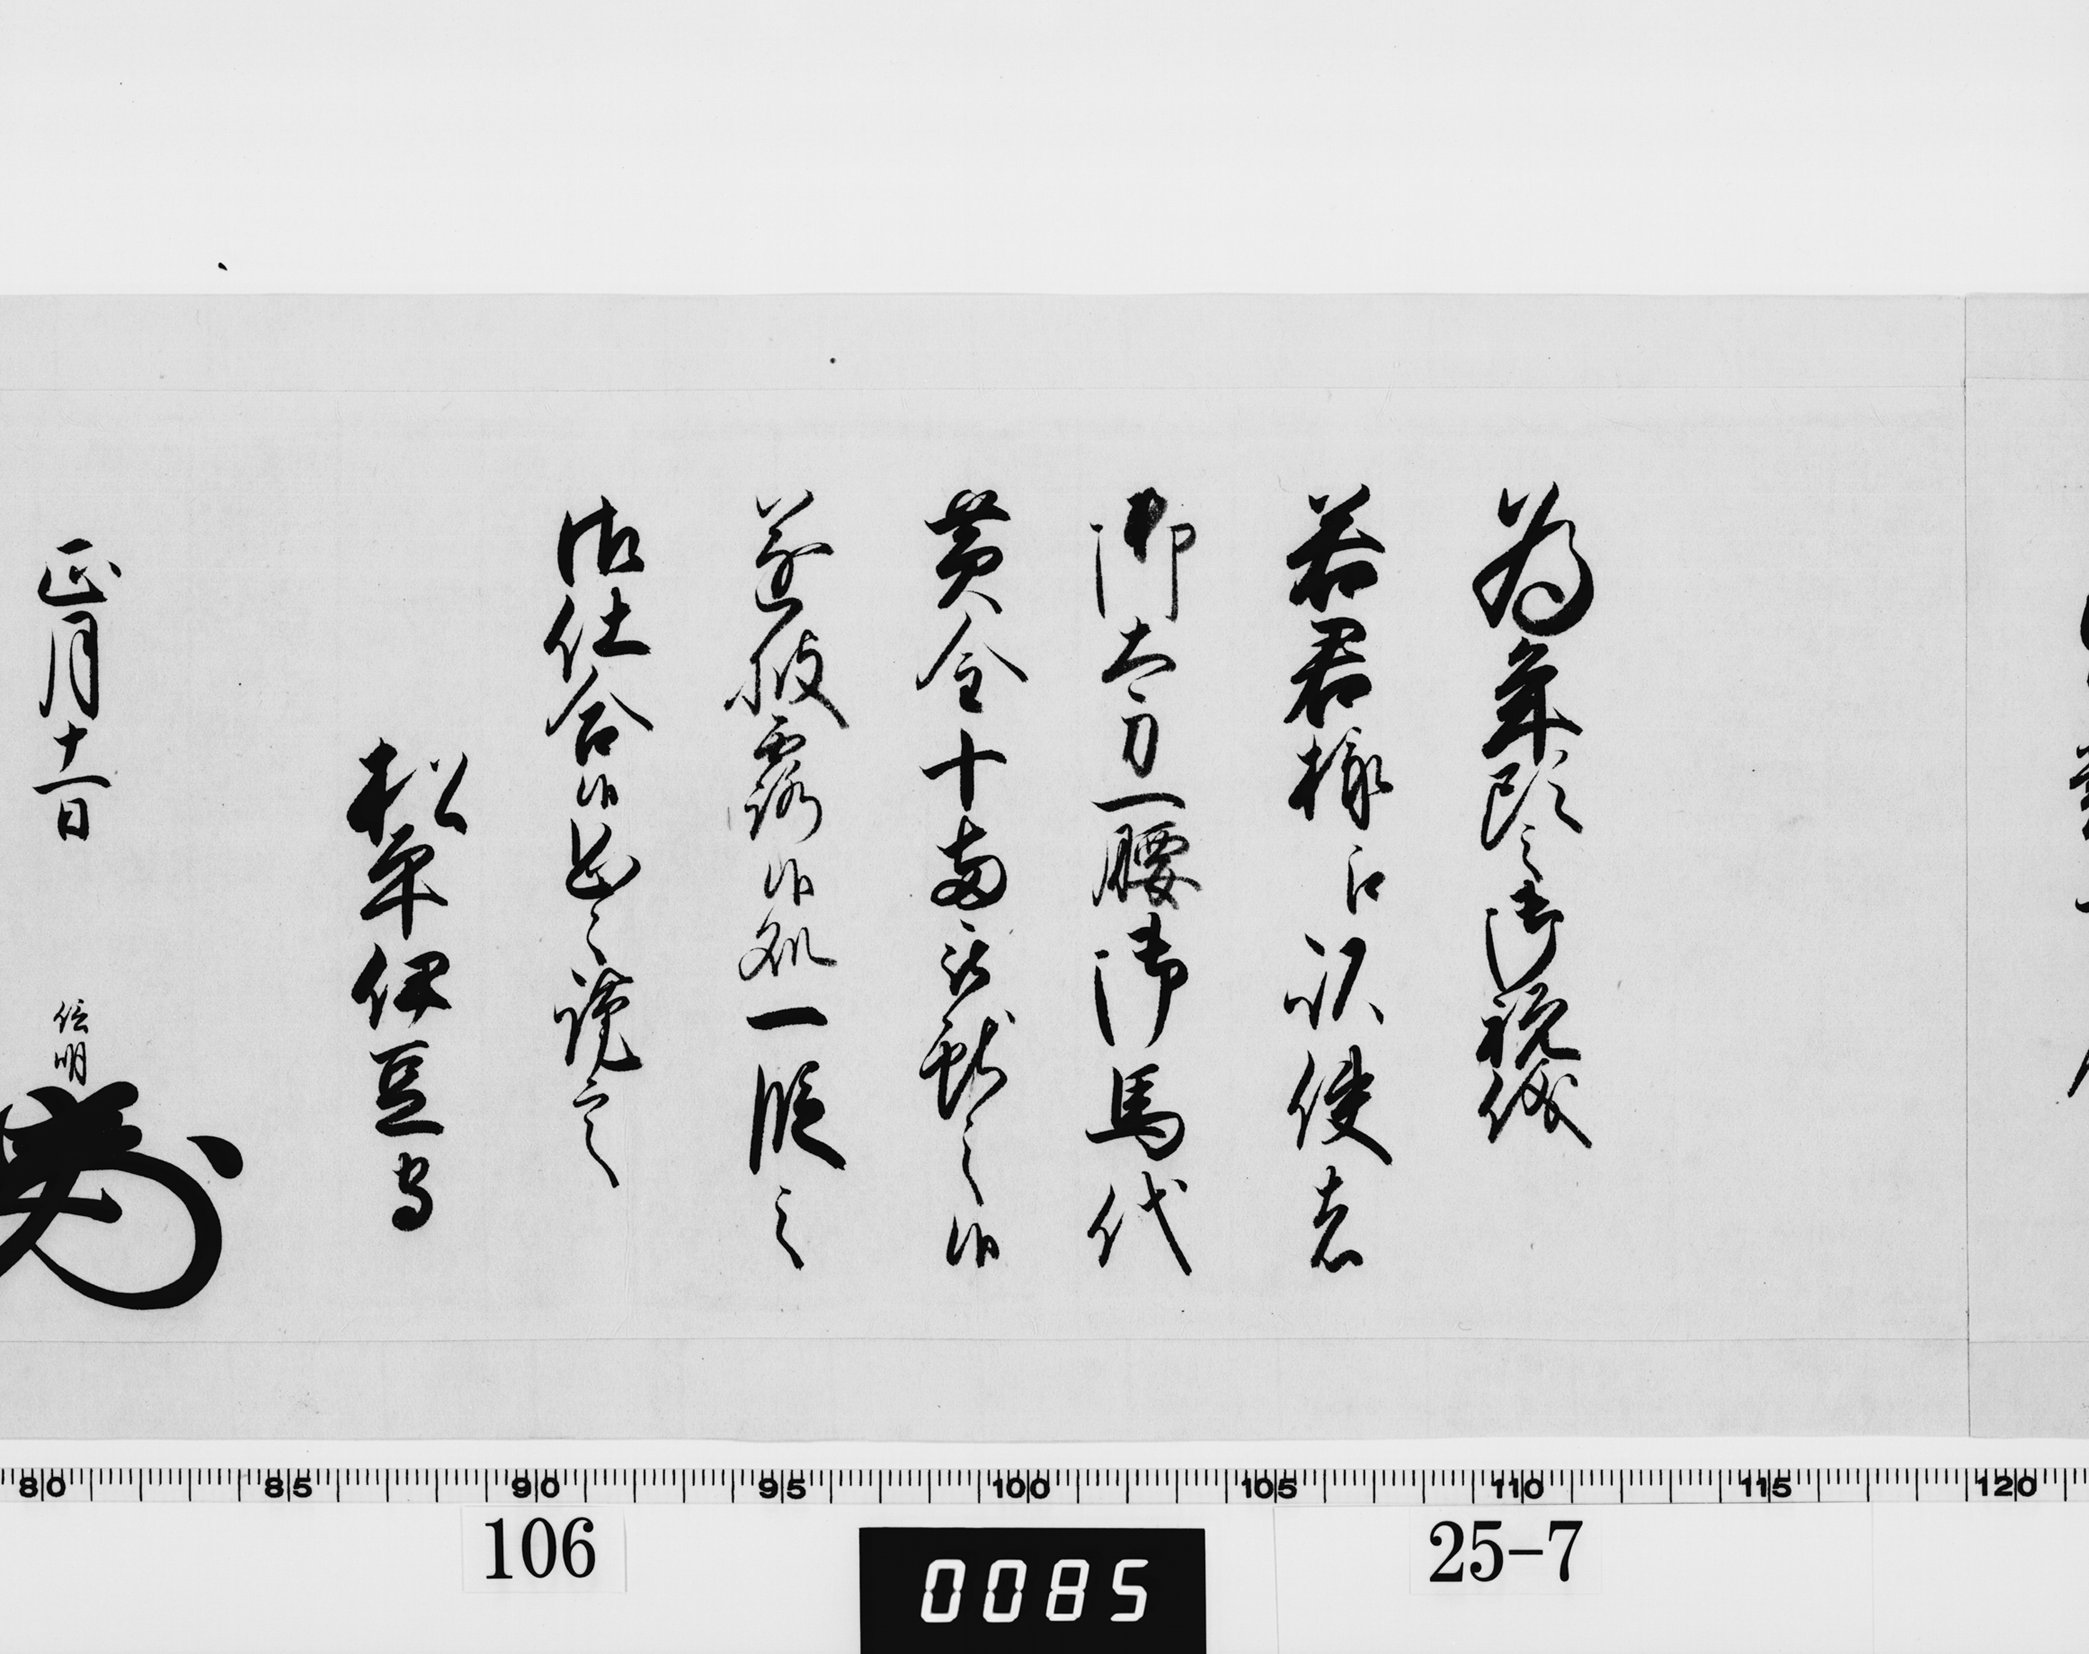 為年頭之御祝儀
若君様江以使者
御太刀一腰御馬代
黄金十両被献之候
遂披露候処一段之
御仕合候恐々謹言
松平伊豆守
正月十一日
信明
80 85 90 95 100 105 110 115 120
106
0085
25-7